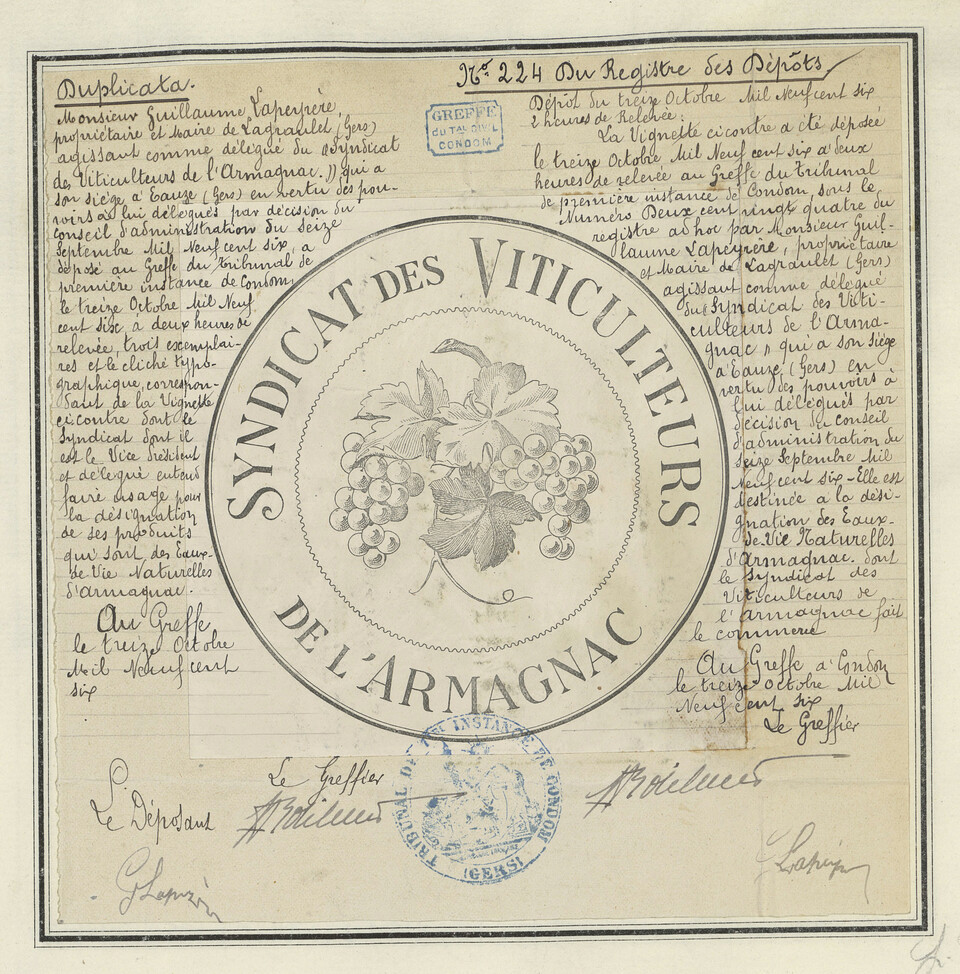 Duplicata.
Monsieur Guillaume Lapeyrère
propriétaire et Maire de Lagraulet (Gers)
agissant comme délégué du "Syndicat
des Viticulteurs de l'Armagnac." qui a
son siège à Eauze (Gers) en vertu des pou-
voirs à lui délégués par décision du
conseil d'administration du seize
Septembre Mil Neuf cent six, a
déposé au Greffe du tribunal de
première instance de Condom,
le treize Octobre Mil Neuf
cent six à deux heures de
relevée, trois exemplai-
res et le cliché typo-
graphique, correspon-
dant de la Vignette
ci contre dont le
Syndicat dont il
est le Vice Président
et délégué entend
faire usage pour
la désignation
de ses produits
qui sont des Eaux-
de-Vie Naturelles
d'armagnac.
Au Greffe
le treize Octobre
Mil Neuf cent
six
Nº 224 Du Registre des Dépôts
Dépôt du treize Octobre Mil Neuf cent six
2 heures de Relevée:
La Vignette ci contre a été déposée
le treize Octobre Mil Neuf cent six à deux
heures de relevée au Greffe du Tribunal
de première instance de Condom, sous le
Numéro Deux cent vingt quatre du
registre ad hoc par Monsieur Guil-
laume Lapeyrère, propriétaire
et Maire de Lagraulet (Gers)
agissant comme délégué
du "Syndicat des Viti-
culteurs de l'Arma-
gnac" qui a son siège
à Eauze (Gers) en
vertu des pouvoirs à
lui délégués par
décision du conseil
d'administration du
seize Septembre Mil
Neuf cent six - Elle est
destinée à la dési-
gnation des Eaux-
de-Vie Naturelles
d'Armagnac. dont
le Syndicat des
Viticulteurs de
l'armagnac fait
le commerce
Au Greffe à Condom
le treize Octobre Mil
Neuf cent six
Le Greffier
GREFFE
du Tal CIVIL
CONDOM
SYNDICAT DES VITICULTEURS
DE L'ARMAGNAC
Le Déposant
Le Greffier
TRIBUNAL DE 1ère INSTANCE DE CONDOM
(GERS)